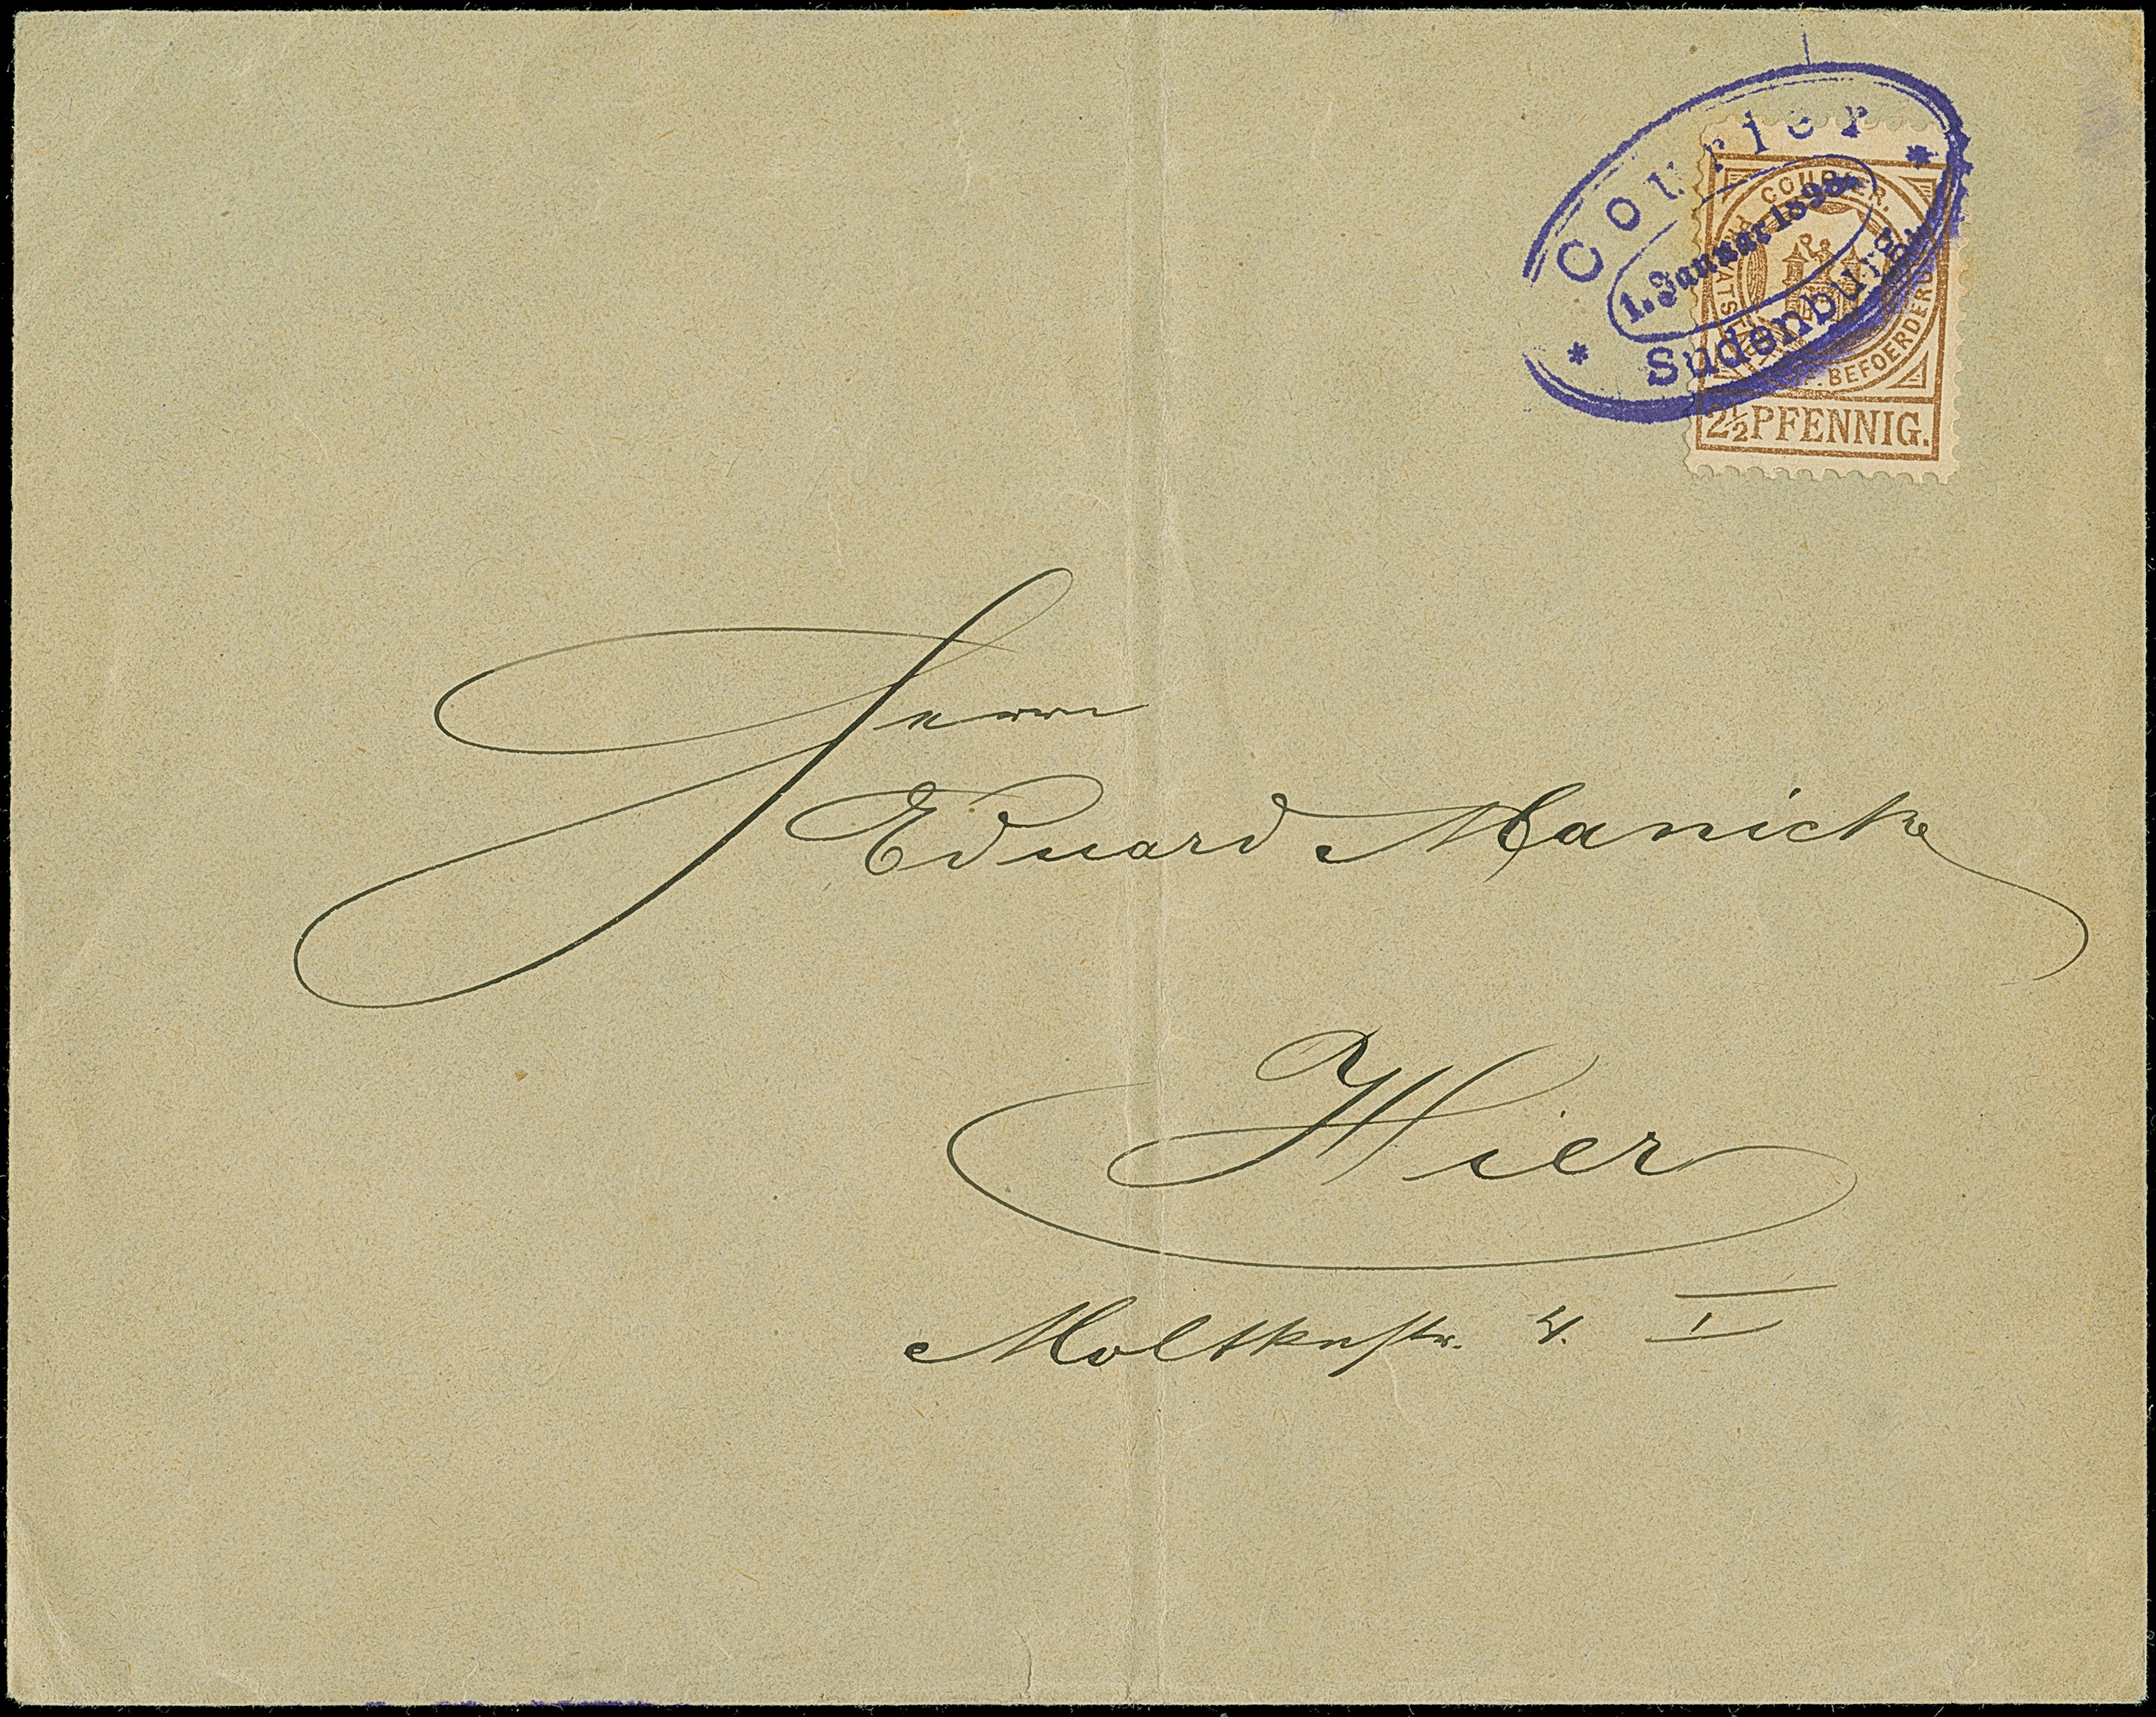 Courier
1. Januar 1898
Sudenburg
COURIER.
BEFOERDERUNG
2½ PFENNIG.
Herrn
Eduard Manicke
Hier
Moltkestr. 4. I